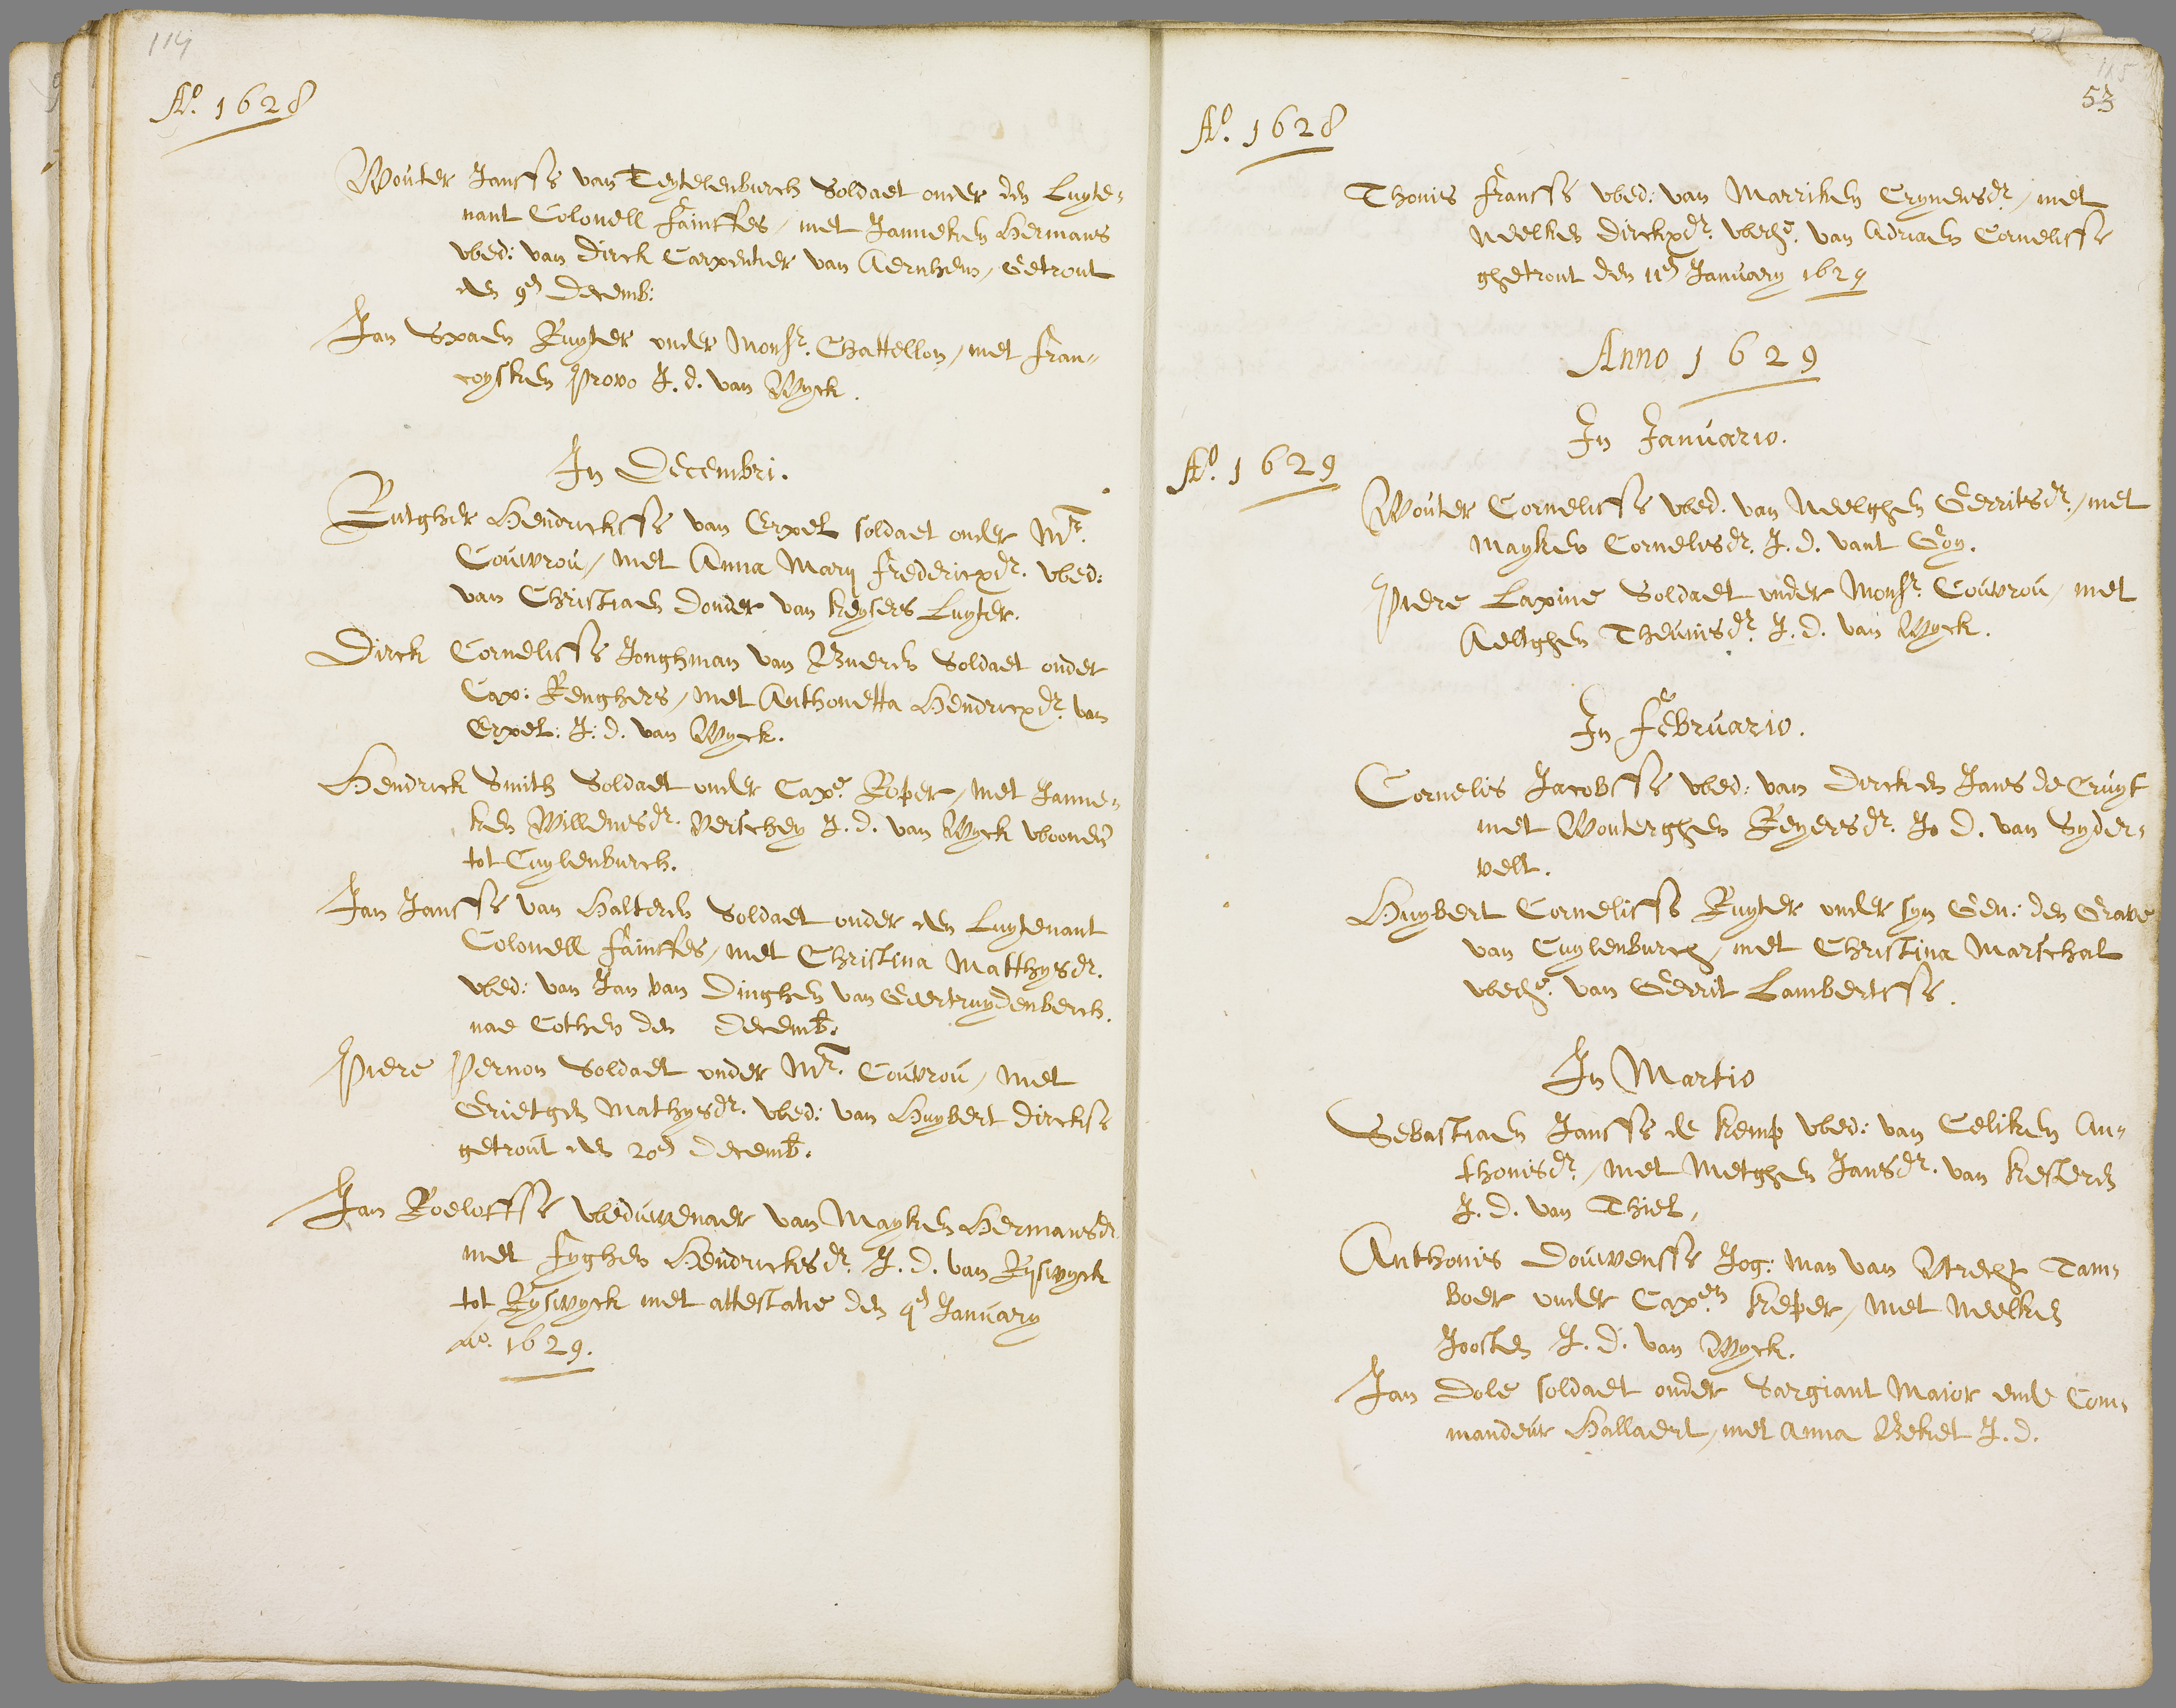 114
Ao. 1628
Wouter Janssz van Teytelenburch Soldaet onder den Luyte-
nant Colonell Fainffes, met Janneken Hermans
wed: van Dirck Carpentier van Aernhem, Getrout
den 9en Decemb:
Jan Spaen Ruyter onder Monsr. Chattellon, met Fran-
coysken Provo J. d. van Wyck.
In Decembri.
Rutgher Hendricksz van Erpel soldaet onder Mr.
Couvrou, met Anna Marij Fredericxdr. wed:
van Christiaen Donder van Keysers Luyter.
Dirck Cornelissz Jonghman van Bueren Soldaet onder
Cap: Renghers, met Anthonetta Hendricxdr. van
Erpel: J: d. van Wyck.
Hendrick Smith Soldaet onder Cape. Roper, met Janne-
ken Willemsdr. Verschey J. d. van Wyck woonen
tot Cuylenburch.
Jan Janssz van Halteren Soldaet onder den Luytenant
Colonell Fainffes, met Christina Matthysdr.
wed: van Jan van Dinghen van Geertruydenberch.
nae Cothen den Decemb.
Piere Pernon Soldaet onder Mr. Couvrou, met
Grietgen Mathysdr. wed: van Huybert Dircksz
getrout den 20en Decemb.
Jan Roeloffsz weduwenaer van Mayken Hermansdr
met Fyghen Hendricksdr. J. d. van Ryswyck
tot Ryswyck met attestatie den 4en January
Ao. 1629.
115
53
Ao. 1628
Thonis Franssz wed: van Marriken Crynensdr, met
Neelken Dirckxdr. wede. van Adriaen Cornelissz
ghetrout den 11en January 1629
Anno 1629
In Januario.
Ao. 1629
Wouter Cornelissz wed. van Neelghen Gerritsdr, met
Mayken Cornelisdr. J. d. vant Goy.
Piere Lapine Soldaet onder Monsr. Couvrou, met
Aeltghen Theunisdr. J. d. van Wyck.
In Februario.
Cornelis Jacobssz wed: van Dircken Jans de Cruyf
met Wouterghen Reyersdr. Jo D. van Syder-
velt.
Huybert Cornelissz Ruyter onder syn Gen: den Grave
van Cuylenburch, met Christina Marschal
wede. van Gerrit Lambertssz.
In Martio
Sebastiaen Janssz de Kemp wed: van Celiken An-
thonisdr, met Metghen Jansdr. van Kesteren
J. d. van Thiel,
Anthonis Douwenssz Jog: man van Utrecht Tam-
boer onder Capen Keper, met Neelken
Joosten J. d. van Wyck.
Jan Dole soldaet onder Sargiant Maior ende Com-
mandeur Hallaert, met Anna Beket J. d.